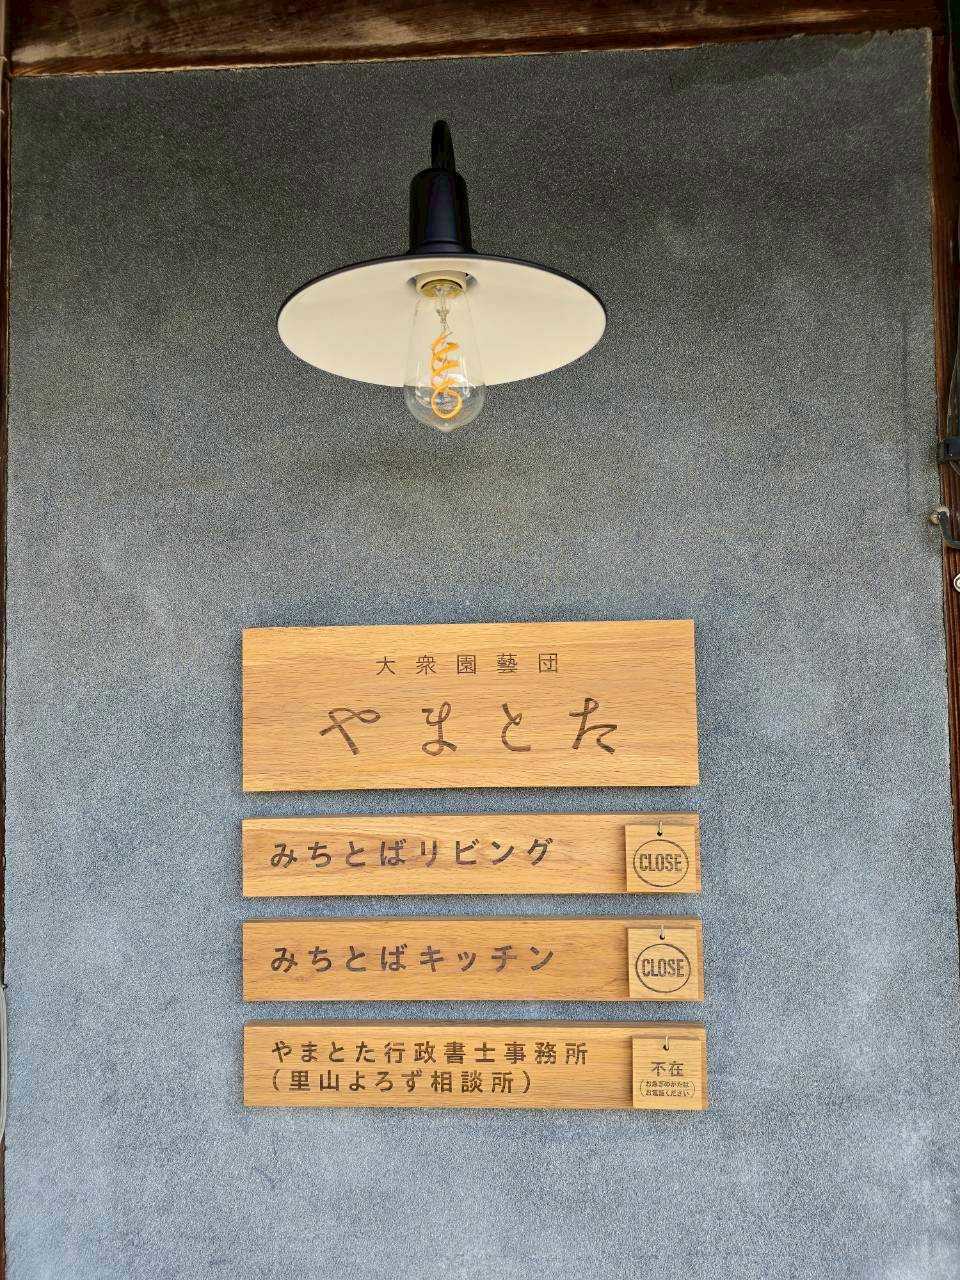 大衆園藝団
やまとた
みちとばリビング
CLOSE
みちとばキッチン
CLOSE
やまとた行政書士事務所
(里山よろず相談所)
不在
お急ぎのかたは
お電話ください